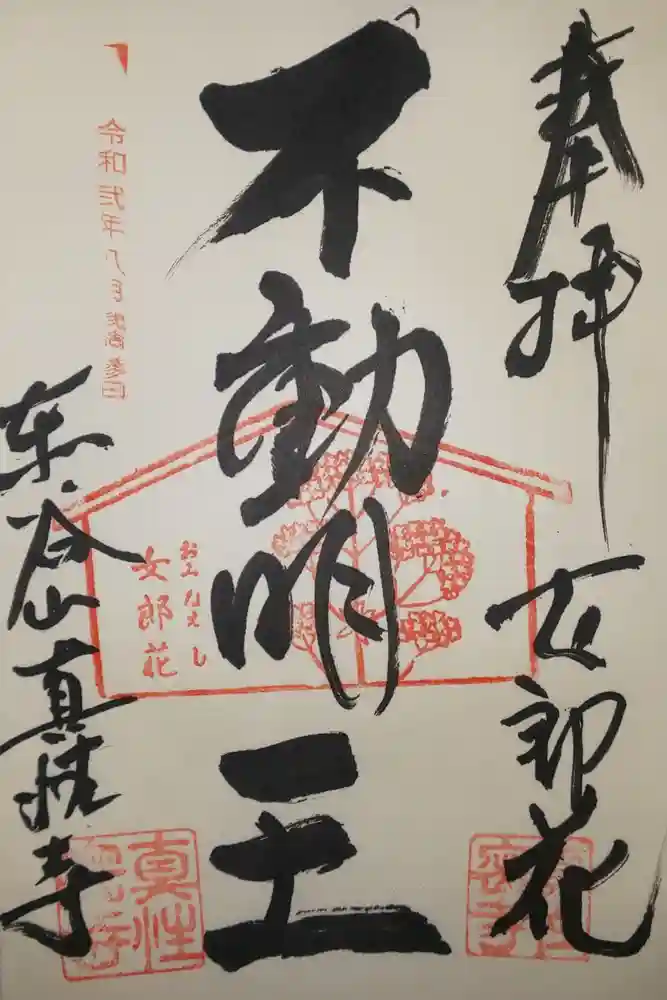 奉拝
女郎花
不動明王
おみなえし
女郎花
令和弐年八月弐拾参日
東谷山真性寺
真性